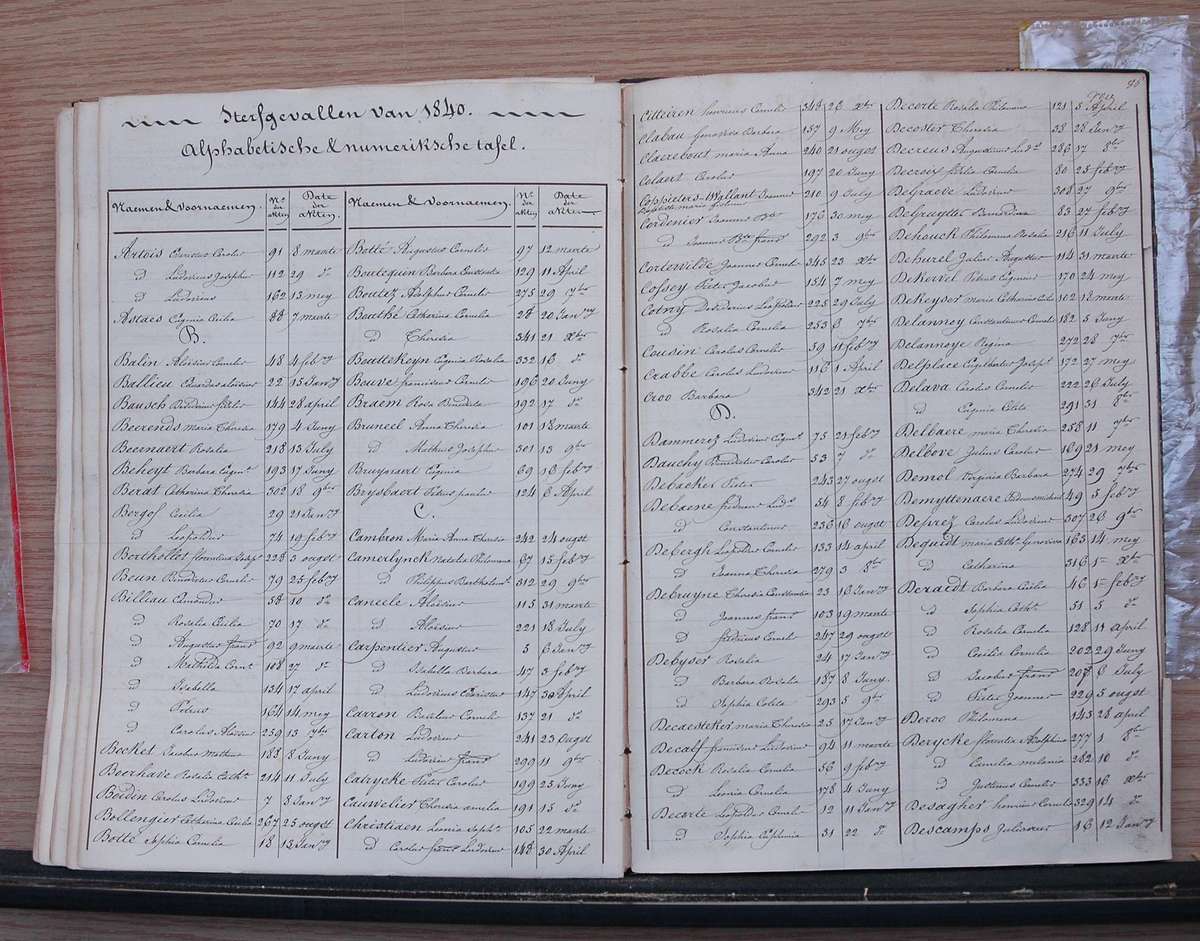 Sterfgevallen van 1840.
Alphabetische & numeriksche tafel.
Naemen & Voornaemen. N.º der akten Date der akten.
Artois Carolus 91 8 marte
d Ludovicus Josephus 112 29 dº
d Ludovicus 162 13 mey
Astaes Eugenia Cecilia 88 7 marte
B.
Balin Aloisius Cornelius 48 4 feb.ry
Ballieu Eduardus aloisius 22 15 Jan.ry
Bausch Desiderius 144 28 april
Beerends maria Theresia 179 4 Juny
Beernaert Rosalia 218 13 July
Beheyt Barbara Eugen.ª 193 17 Juny
Berat Catherina Theresia 302 18 9.ber
Bergof Cecilia 29 21 Jan.ry
d Leopoldus 74 19 feb.ry
Berthellet florentina 228 3 ougst
Beun Benedictus Cornelius 79 25 feb.ry
Billiau Edmondus 58 10 dº
d Rosalia Cecilia 70 17 dº
d Augustus frans 92 9 marte
d Mathilde Corn.ª 108 27 dº
d Isabella 134 17 april
d Petrus 164 14 mey
d Carolus Aloisius 259 13 7.ber
Becket Jacobus Mattheus 188 8 Juny
Boerhave Rosalia Cath.ª 214 11 July
Boidin Carolus Ludovicus 7 8 Jan.ry
Bollengier Catharina Cecilia 267 25 ougst
Botte Sophia Cornelia 18 13 Jan.ry
Naemen & Voornaemen. N.º der akten Date der akten
Botté Augustus Cornelis 97 12 marte
Boutequin Barbara Constantia 129 11 April
Boutez Adolphus Cornelis 275 29 7.ber
Bouthé Catherina Cornelia 28 20 Jan.ry
d Theresia 341 21 X.ber
Bouttekeyn Eugenia Rosalia 332 16 dº
Bouve franciscus Cornelis 196 20 Juny
Braem Rosa Benedicta 192 17 dº
Bruneel Anna Theresia 101 18 marte
d Matheus Josephus 301 13 9.ber
Bruynaert Eugenia 69 16 feb.ry
Brysbaert Petrus paulus 124 6 April
C.
Cambron Maria Anna Theresia 242 24 ougst
Camerlynck Natalia Philomena 67 15 feb.ry
d Philippus Bartholom.s 312 29 9.ber
Caneele Aloisius 115 31 marte
d Aloisius 221 18 July
Carpentier Augustus 3 6 Jan.ry
d Isabella Barbara 47 3 feb.ry
d Ludovicus Evaristus 147 30 April
Carron Basilius Cornelis 137 21 dº
Carton Ludovicus 241 23 Ougst
d Ludovicus frans 299 11 9.ber
Catrycke Pieter Carolus 199 25 Juny
Cauwelier Theresia amelia 191 15 dº
Christiaen Leonia Soph.ª 105 22 marte
d Carolus frans Ludovicus 148 30 April
96
Citteiren henricus Cornelis 348 26 X.ber
Clabau Genoveva Barbara 157 9 Mey
Claerebout maria Anna 240 21 ougst
Colaert Carolus 197 20 Juny
Coppieters-Wallant Joannes 210 9 July
Baptiste marie
Cordonier Joannes B.te 176 30 mey
d Joannes B.te frans 292 3 9.ber
Cortewilde Joannes Cornelis 345 23 X.ber
Cossey Pieter Jacobus 154 7 mey
Cotny Desiderius Leopoldus 225 29 July
d Rosalia Cornelia 253 6 7.ber
Cousin Carolus Cornelis 59 11 feb.ry
Crabbe Carolus Ludovicus 116 1 April
Croo Barbara 342 21 X.ber
D.
Dammerez Ludovicus Eugen.s 75 21 feb.ry
Dauchy Benedictus Carolus 53 7 dº
Debacker Pieter 243 27 ougst
Debaene frederic Lud.s 54 8 feb.ry
d Constantinus 236 16 ougst
Debergh Leopoldus Cornelis 133 14 april
d Joanna Theresia 279 3 8.ber
Debruyne Theresia Constantia 23 16 Jan.ry
d Joannes frans 103 19 marte
d fredericus Cornelis 247 29 ougst
Debyser Rosalia 24 17 Jan.ry
d Barbara Rosalia 187 8 Juny.
d Sophia Coleta 293 5 9.ber
Decaesteker maria Theresia 25 17 Jan.ry
Decalf franciscus Ludovicus 94 11 marte
Decock Rosalia Cornelia 56 9 feb.ry
d Leonia Cornelia 178 4 Juny
Decorte Leopoldus Cornelis 12 11 Jan.ry
d Sophia Euphemia 31 22 dº
Decorte Rosalia Philomena 121 5 April
Decoster Theresia 38 28 Jan.ry
Decreus Augustinus Lud.s 286 17 8.ber
Decroix Cornelia 80 25 feb.ry
Degraeve Ludovicus 308 27 9.ber
Degruytte Bernardina 83 27 feb.ry
Dehouck Philomena Rosalia 216 11 July
Dehurél Julius Augustus 114 31 marte
Dekervel Petrus Eugenius 170 24 mey
Dekeyser maria Catharina 102 18 marte
Delannoy Constantinus Cornelis 182 5 Juny
Delannoye Regina 272 28 7.ber
Delplace Engelbertus Joseph 172 27 mey
Delava Carolus Cornelis 222 26 July
d Eugenia Coleta 291 31 8.ber
Delbaere maria Theresia 258 11 7.ber
Delbove Julius Carolus 169 21 mey
Demol Virginia Barbara 274 29 7.ber
Demyttenaere 49 5 feb.ry
Deprez Carolus Ludovicus 307 26 9.ber
Dequidt maria Cath.ª Genoveva 165 14 mey
d Catharina 316 1= X.ber
Deraedt Barbara Cecilia 46 1= feb.ry
d Sophia Cath.ª 51 5 dº
d Rosalia Cornelia 128 11 april
d Cecilia Cornelia 202 29 Juny
d Jacobus frans 207 6 July
d Pieter Joannes 229 5 ougst
Deroo Philomena 143 28 april
Derycke florentia Adolphina 277 1 8.ber
d Emelia melania 282 10 dº
d Justinus Cornelis 333 16 X.ber
Desagher henricus Cornelis 329 14 dº
Descamps Julianus 16 12 Jan.ry